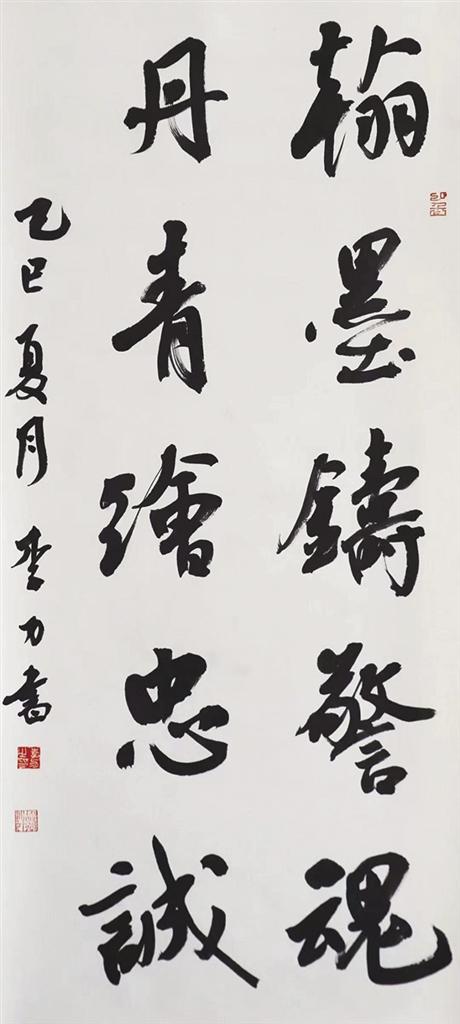 翰墨鑄警魂
丹青繪忠誠
乙巳夏月 李力書